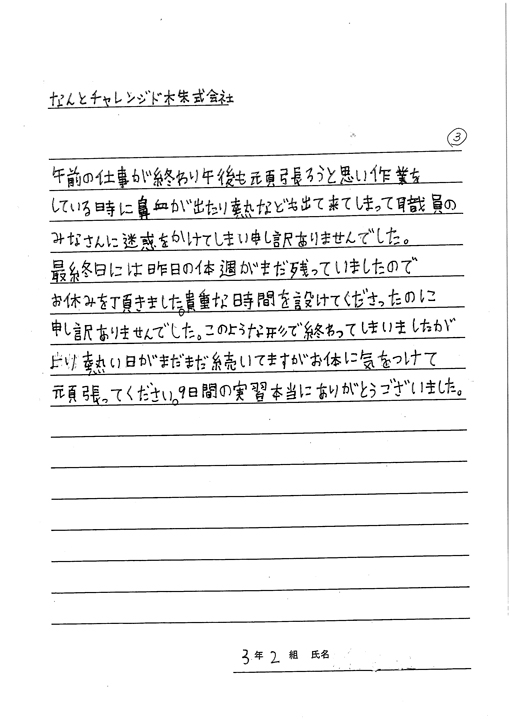 なんとチャレンジド株式会社
③
午前の仕事が終わり午後も頑張ろうと思い作業を
している時に鼻血が出たり熱なども出て来てしまって職員の
みなさんに迷惑をかけてしまい申し訳ありませんでした。
最終日には昨日の体週がまだ残っていましたので
お休みを頂きました。貴重な時間を設けてくださったのに
申し訳ありませんでした。このような形で終わってしまいましたが
熱い日がまだまだ続いてますがお体に気をつけて
頑張ってください。9日間の実習本当にありがとうございました。
3年2組 氏名